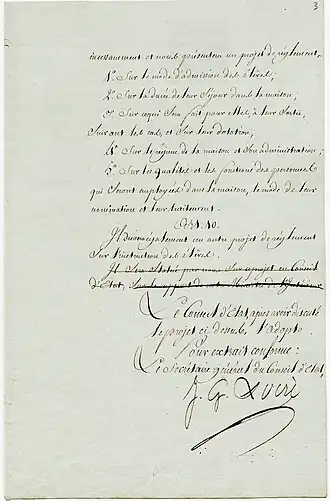 3
incessamment et nous présentera un projet de règlement,
1° Sur le mode d'admission des élèves;
2° Sur la durée de leur Séjour dans la maison;
3° Sur ce qui Sera fait pour elles, à leur Sortie,
Suivant les cas, et Sur leur dotation;
4° Sur le régime de la maison et Son administration;
5° Sur les qualités et les fonctions des personnes
qui Seront employées dans la maison, le mode de leur
nomination et leur traitement.
Art. 10.
Il Dressera également un autre projet de règlement
Sur l'instruction des élèves.
Il Sera Statué par nous Sur ce projet en Conseil
d'Etat, Sur le rapport de notre Ministre de l'Intérieur
Le Conseil d'Etat, après avoir discuté
le projet ci-dessus l'adopte.
Pour extrait conforme:
Le Secrétaire général du Conseil d'Etat,
J. G. Locré